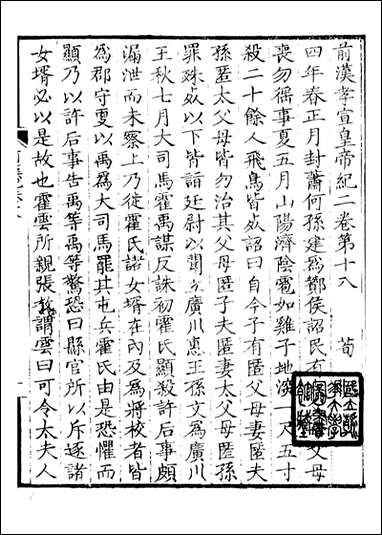 前漢孝宣皇帝紀二卷第十八 荀
四年春正月封蕭何孫建爲酇侯詔民有 父母
喪勿徭事夏五月山陽濟陰雹如雞子地深一尺五寸
殺二十餘人飛鳥皆死詔曰自今子有匿父母妻匿夫
孫匿大父母皆勿治其父母匿子夫匿妻大父母匿孫
罪殊死以下皆請廷尉以聞立廣川惠王孫文爲廣川
王秋七月大司馬霍禹謀反誅初霍氏顯殺許后事頗
漏泄而未察上乃徙霍氏諸女壻在內及爲將校者皆
爲郡守更以禹爲大司馬罷其屯兵霍氏由是恐懼而
顯乃以許后事告禹等禹等驚恐曰縣官所以斥逐諸
女壻必以是故也霍雲所親張赦謂雲曰可令太夫人